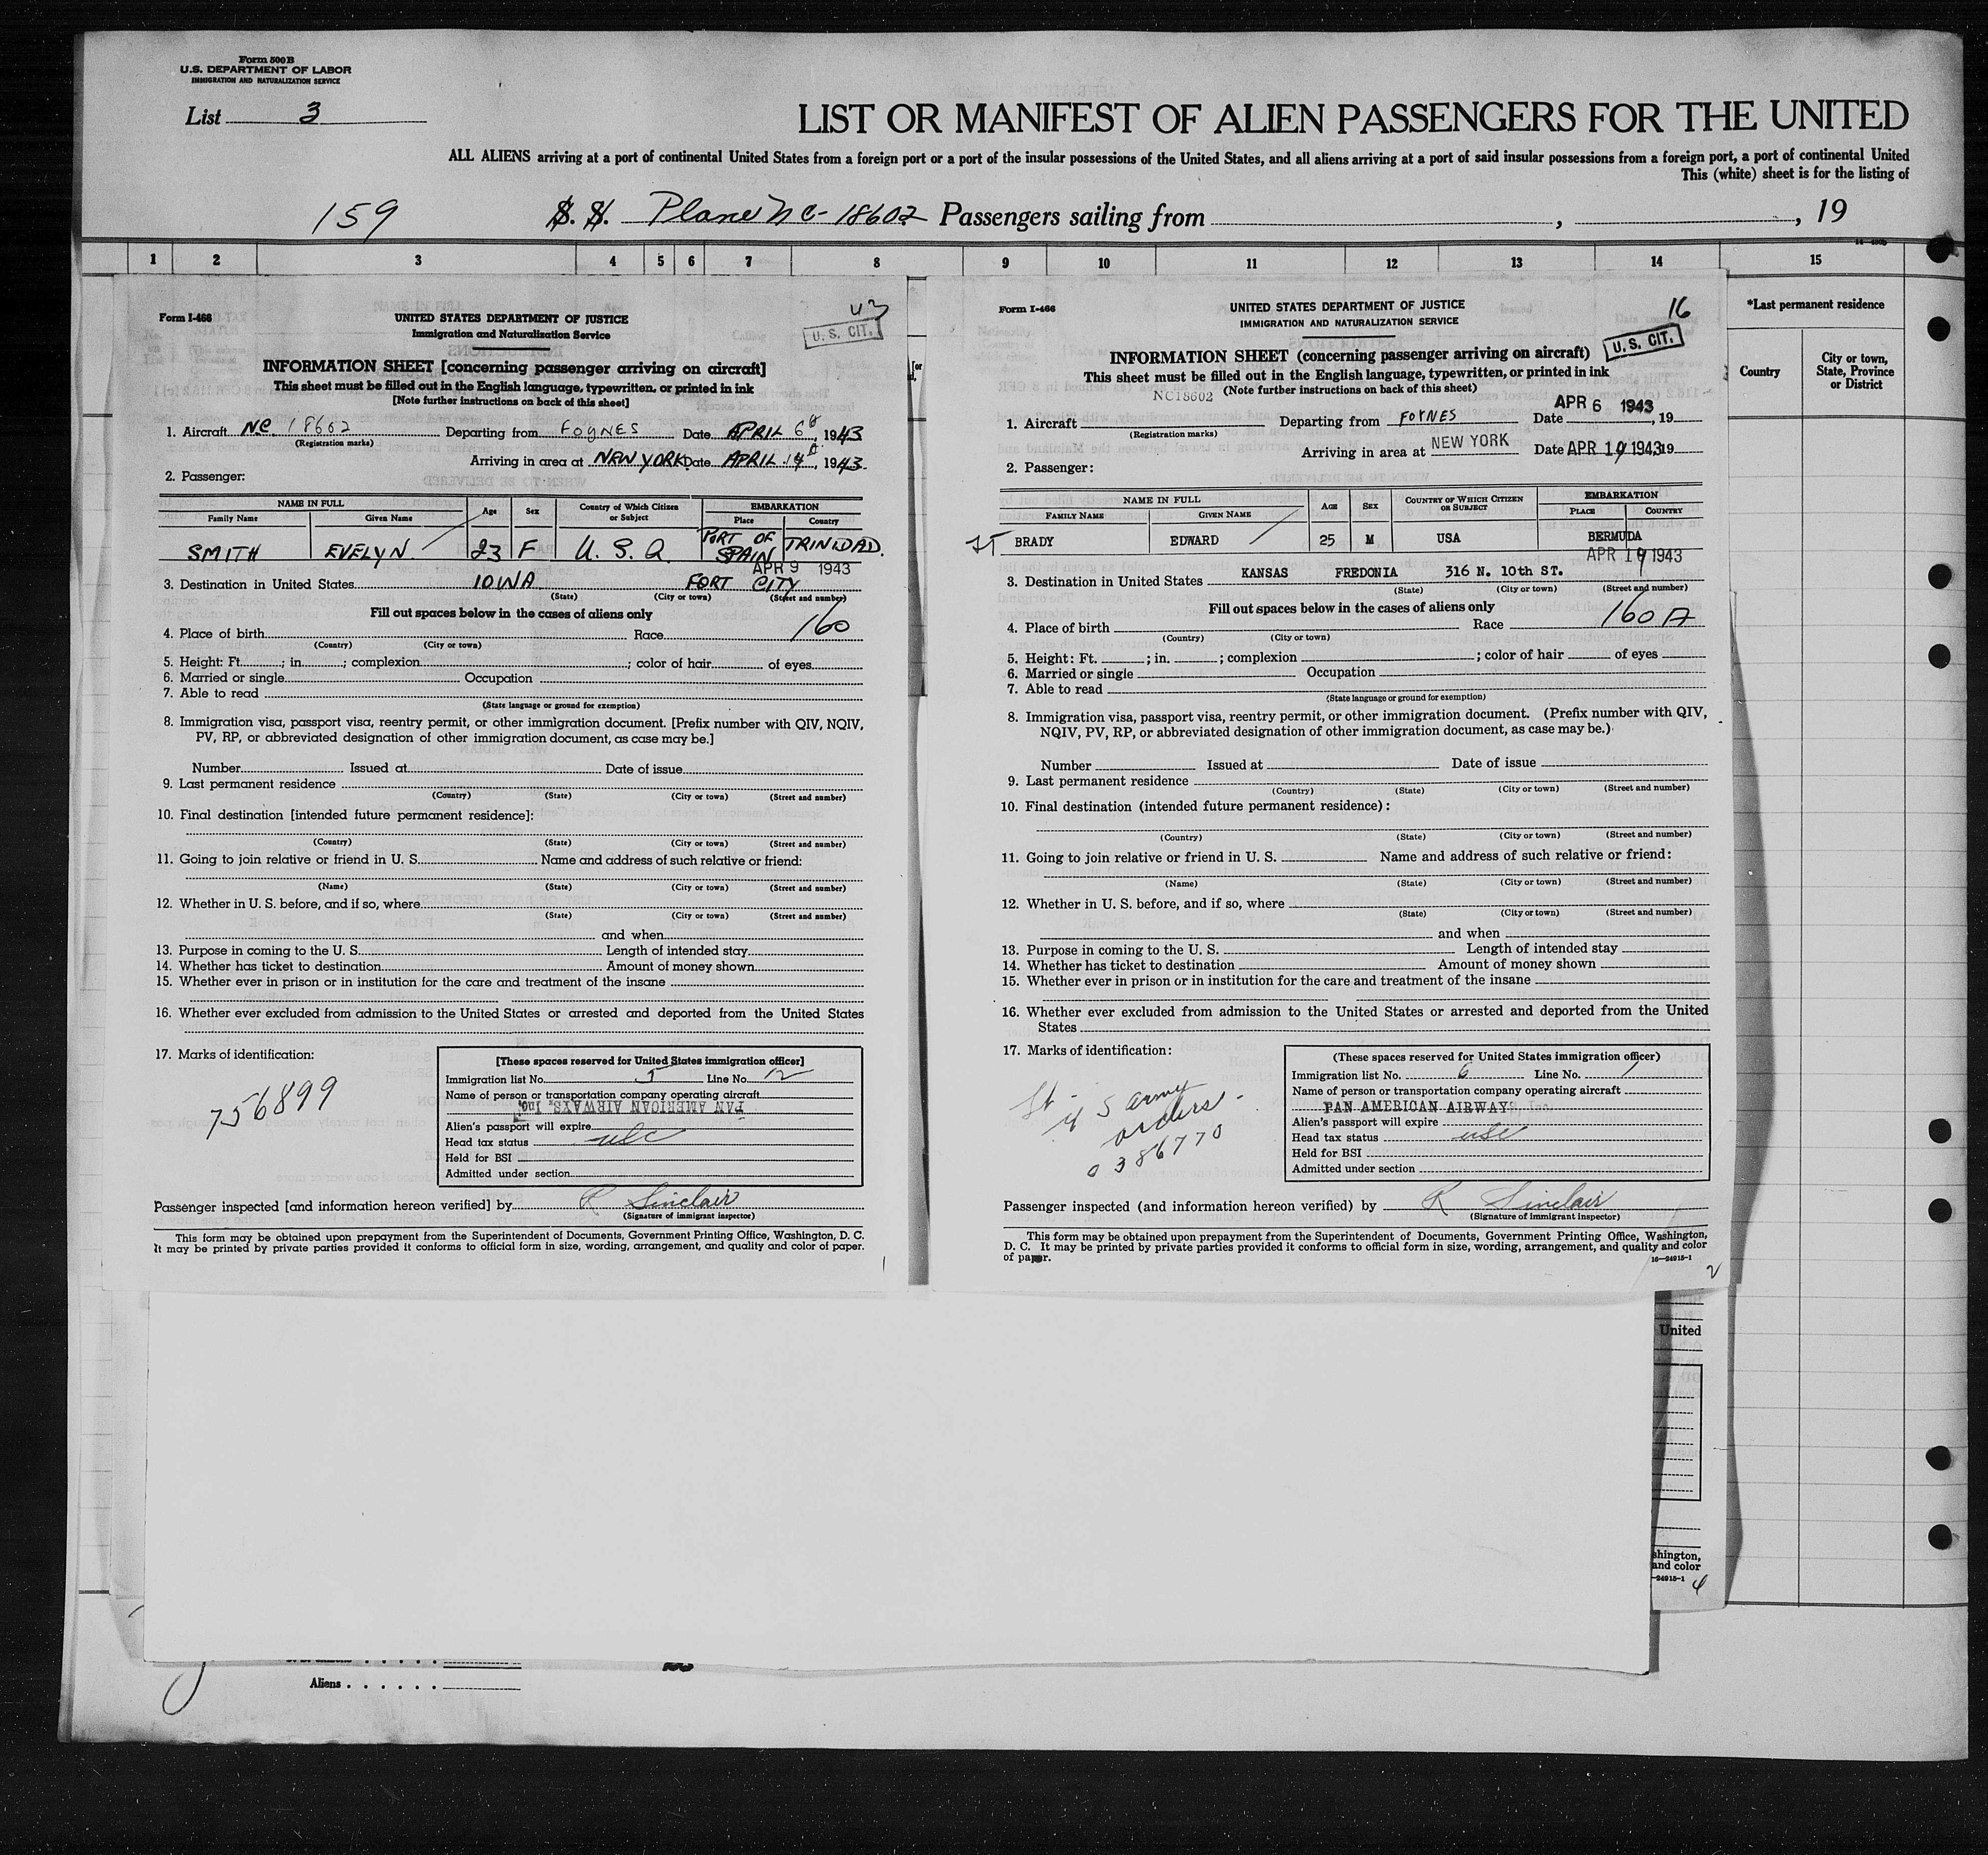 Form 500B
U.S. DEPARTMENT OF LABOR
IMMIGRATION AND NATURALIZATION SERVICE
List 3
LIST OR MANIFEST OF ALIEN PASSENGERS FOR THE UNITED
ALL ALIENS arriving at a port of continental United States from a foreign port or a port of the insular possessions of the United States, and all aliens arriving at a port of said insular possessions from a foreign port, a port of continental United
This (white) sheet is for the listing of
159 S. S. Plane NC-18602 Passengers sailing from , , 19
1 2 3 4 5 6 7 8 9 10 11 12 13 14 15
*Last permanent residence
Country
City or town,
State, Province
or District
Form I-466
UNITED STATES DEPARTMENT OF JUSTICE
Immigration and Naturalization Service
43
U. S. CIT.
INFORMATION SHEET [concerning passenger arriving on aircraft]
This sheet must be filled out in the English language, typewritten, or printed in ink
[Note further instructions on back of this sheet]
1. Aircraft NC 18602 Departing from FOYNES Date APRIL 6th, 1943
(Registration marks)
Arriving in area at NEW YORK Date APRIL 14th, 1943
2. Passenger:
NAME IN FULL Age Sex Country of Which Citizen or Subject EMBARKATION
Family Name Given Name Place Country
SMITH EVELYN 23 F U. S. A PORT OF SPAIN TRINIDAD.
APR 9 1943
3. Destination in United States IOWA FORT CITY
(State) (City or town) (Street and number)
Fill out spaces below in the cases of aliens only
160
4. Place of birth Race
(Country) (City or town)
5. Height: Ft. ; in. ; complexion ; color of hair of eyes
6. Married or single Occupation
7. Able to read
(State language or ground for exemption)
8. Immigration visa, passport visa, reentry permit, or other immigration document. [Prefix number with QIV, NQIV,
PV, RP, or abbreviated designation of other immigration document, as case may be.]
Number Issued at Date of issue
9. Last permanent residence
(Country) (State) (City or town) (Street and number)
10. Final destination [intended future permanent residence]:
(Country) (State) (City or town) (Street and number)
11. Going to join relative or friend in U. S. Name and address of such relative or friend:
(Name) (State) (City or town) (Street and number)
12. Whether in U. S. before, and if so, where
(State) (City or town) (Street and number)
and when
13. Purpose in coming to the U. S. Length of intended stay
14. Whether has ticket to destination Amount of money shown
15. Whether ever in prison or in institution for the care and treatment of the insane
16. Whether ever excluded from admission to the United States or arrested and deported from the United States
17. Marks of identification:
756899
[These spaces reserved for United States immigration officer]
Immigration list No. 5 Line No. 12
Name of person or transportation company operating aircraft
PAN AMERICAN AIRWAYS, Inc.
Alien's passport will expire
Head tax status usc
Held for BSI
Admitted under section
Passenger inspected [and information hereon verified] by R Sinclair
(Signature of immigrant inspector)
This form may be obtained upon prepayment from the Superintendent of Documents, Government Printing Office, Washington, D. C.
It may be printed by private parties provided it conforms to official form in size, wording, arrangement, and quality and color of paper.
1
Form I-466
UNITED STATES DEPARTMENT OF JUSTICE
IMMIGRATION AND NATURALIZATION SERVICE
16
U. S. CIT.
INFORMATION SHEET (concerning passenger arriving on aircraft)
This sheet must be filled out in the English language, typewritten, or printed in ink
(Note further instructions on back of this sheet)
NC18602
APR 6 1943
1. Aircraft Departing from FOYNES Date , 19
(Registration marks)
Arriving in area at NEW YORK Date APR 14 1943 19
2. Passenger:
NAME IN FULL AGE SEX COUNTRY OF WHICH CITIZEN OR SUBJECT EMBARKATION
FAMILY NAME GIVEN NAME PLACE COUNTRY
BRADY EDWARD 25 M USA BERMUDA
APR 14 1943
3. Destination in United States KANSAS FREDONIA 316 N. 10th ST.
(State) (City or town) (Street and number)
Fill out spaces below in the cases of aliens only
160 A
4. Place of birth Race
(Country) (City or town)
5. Height: Ft. ; in. ; complexion ; color of hair of eyes
6. Married or single Occupation
7. Able to read
(State language or ground for exemption)
8. Immigration visa, passport visa, reentry permit, or other immigration document. (Prefix number with QIV,
NQIV, PV, RP, or abbreviated designation of other immigration document, as case may be.)
Number Issued at Date of issue
9. Last permanent residence
(Country) (State) (City or town) (Street and number)
10. Final destination (intended future permanent residence):
(Country) (State) (City or town) (Street and number)
11. Going to join relative or friend in U. S. Name and address of such relative or friend:
(Name) (State) (City or town) (Street and number)
12. Whether in U. S. before, and if so, where
(State) (City or town) (Street and number)
and when
13. Purpose in coming to the U. S. Length of intended stay
14. Whether has ticket to destination Amount of money shown
15. Whether ever in prison or in institution for the care and treatment of the insane
16. Whether ever excluded from admission to the United States or arrested and deported from the United
States
17. Marks of identification:
U S army
orders -
0386770
(These spaces reserved for United States immigration officer)
Immigration list No. 6 Line No. 1
Name of person or transportation company operating aircraft
PAN AMERICAN AIRWAYS, Inc.
Alien's passport will expire
Head tax status usc
Held for BSI
Admitted under section
Passenger inspected (and information hereon verified) by R Sinclair
(Signature of immigrant inspector)
This form may be obtained upon prepayment from the Superintendent of Documents, Government Printing Office, Washington,
D. C. It may be printed by private parties provided it conforms to official form in size, wording, arrangement, and quality and color
of paper.
16—24915-1
2
United
shington,
and color
—24915-1
4
Aliens